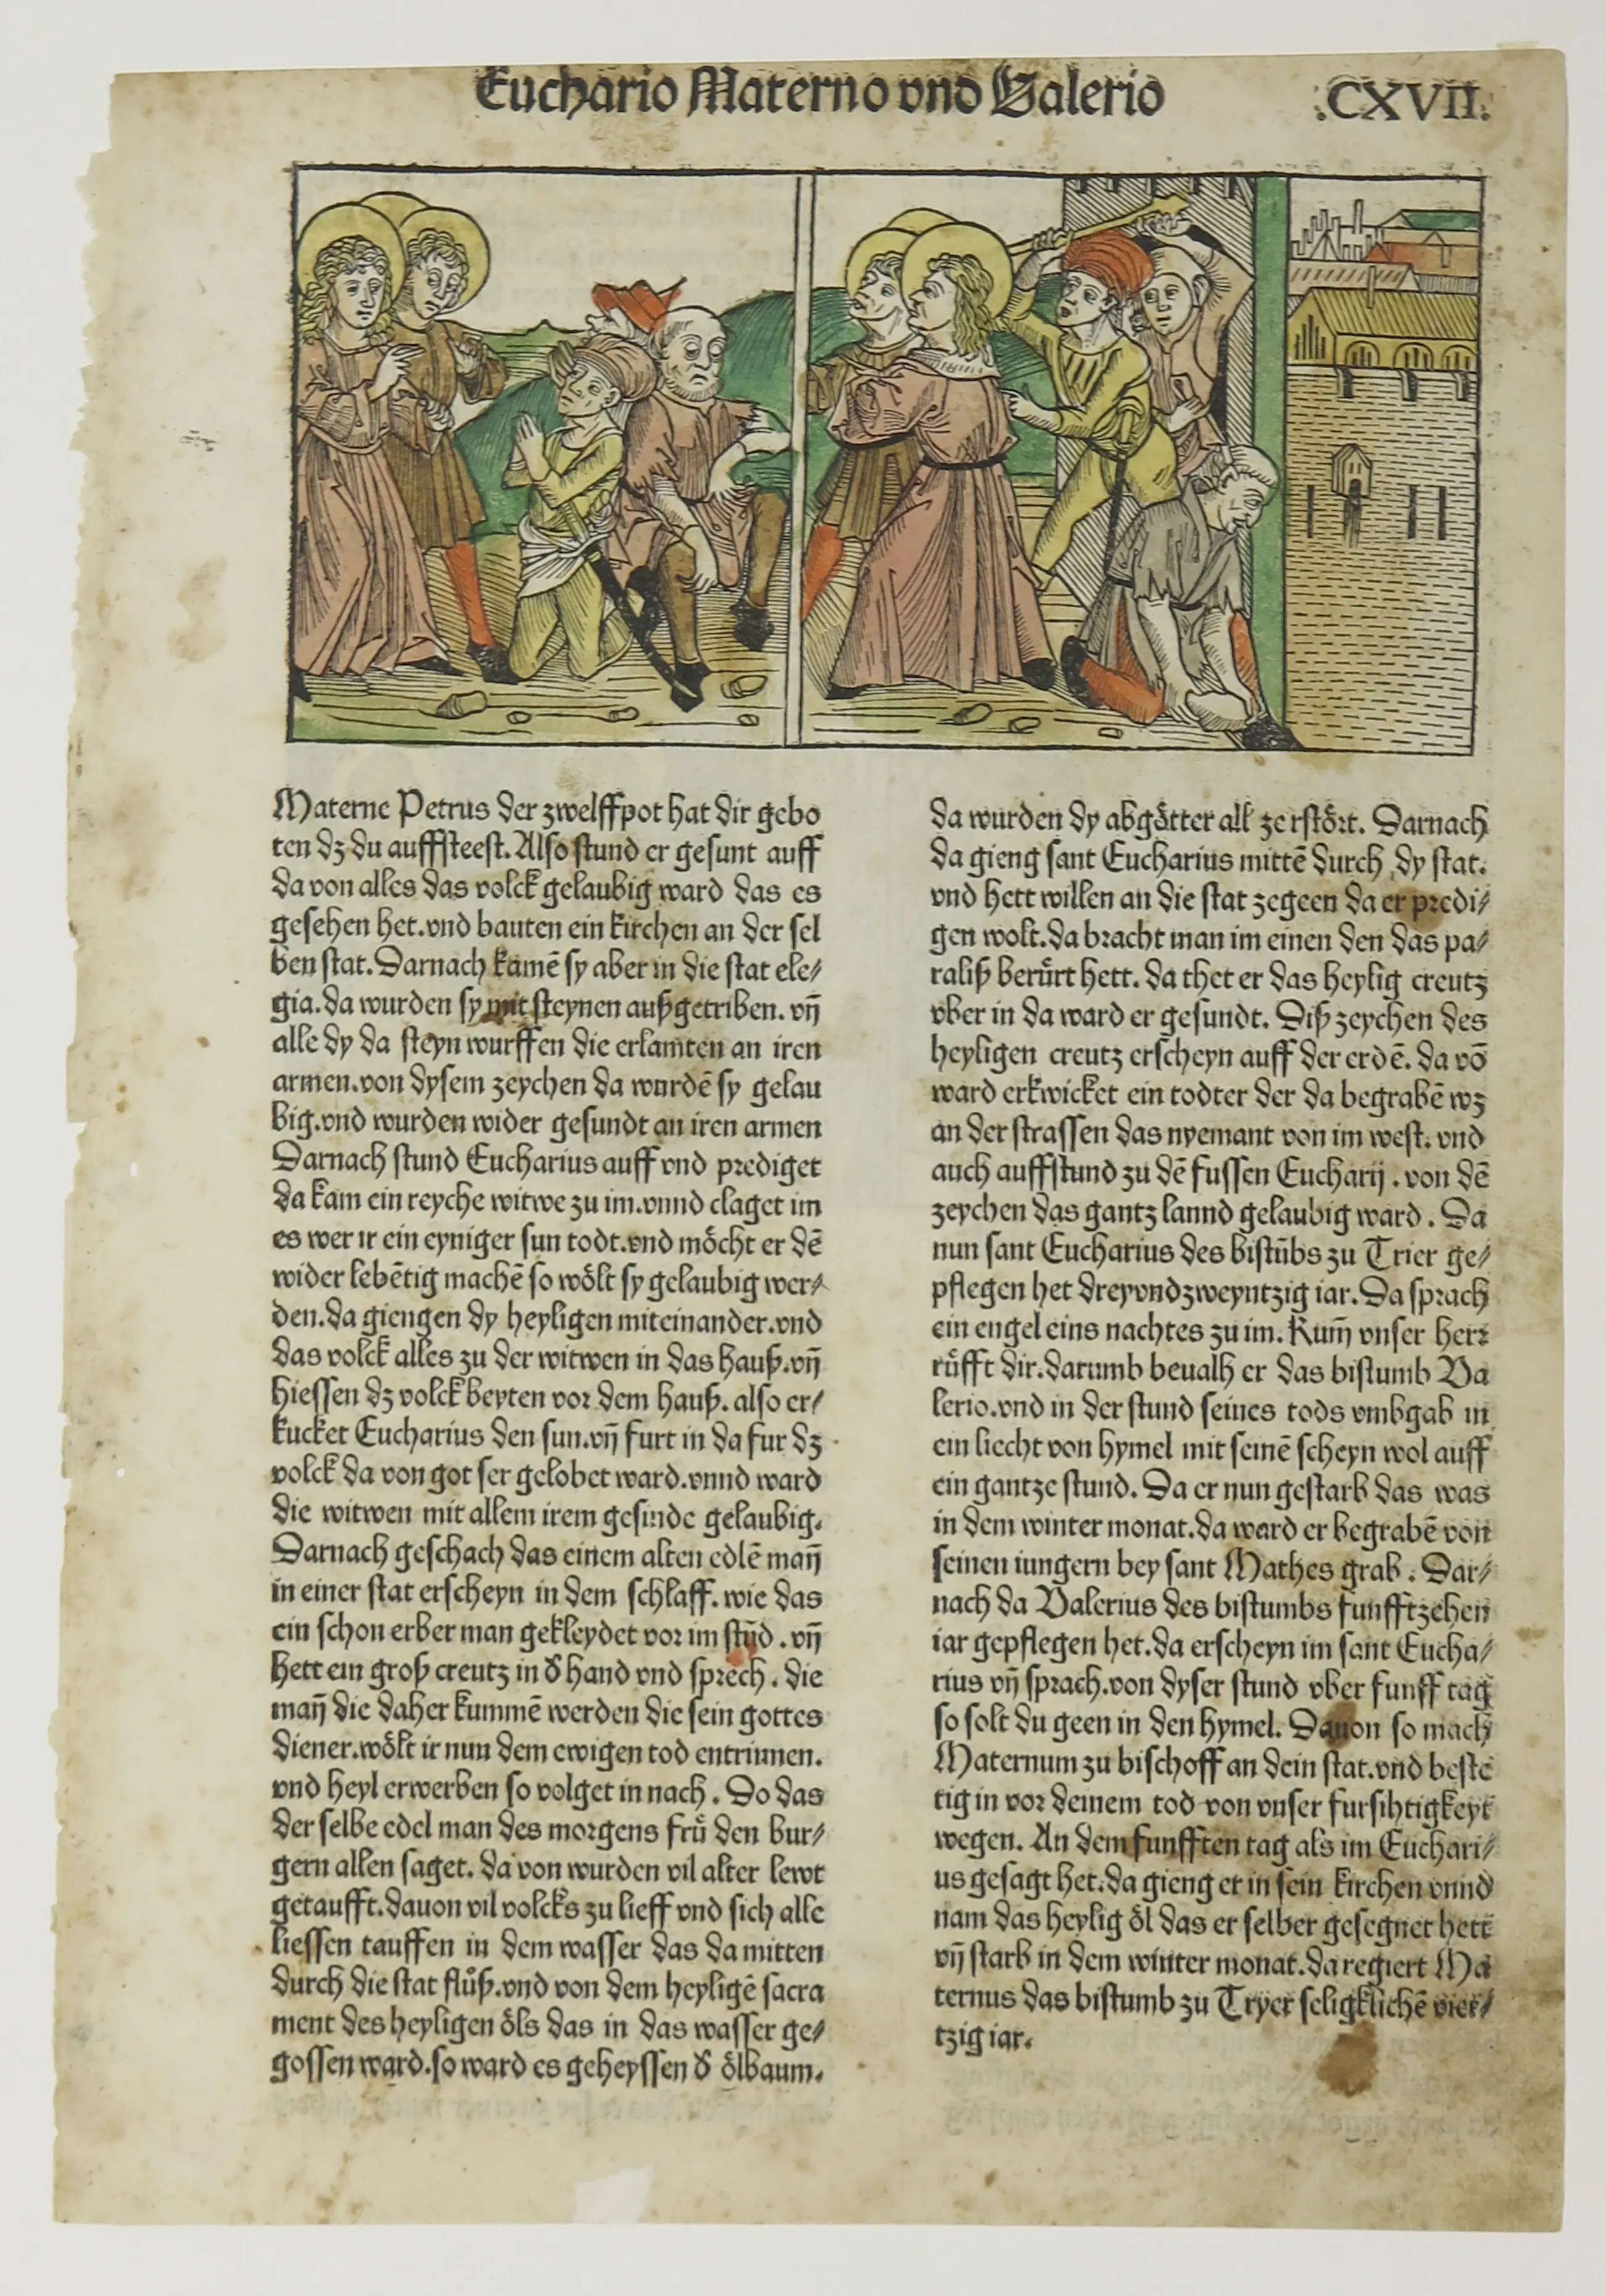 Euchario Materno vnd Valerio
.CXVII.
Materne Petrus der zwelffpot hat dir gebo
ten dz du auffsteest. Also stund er gesunt auff
da von alles das volck gelaubig ward das es
gesehen het. vnd bauten ein kirchen an der sel
ben stat. Darnach kamē sy aber in die stat ele⸗
gia. da wurden sy mit steynen außgetriben. vn̄
alle dy da steyn wurffen die erlamten an iren
armen. von dysem zeychen da wurdē sy gelau
big. vnd wurden wider gesundt an iren armen
Darnach stund Eucharius auff vnd prediget
da kam ein reyche witwe zu im. vnnd claget im
es wer ir ein eyniger sun todt. vnd möcht er dē
wider lebētig machē so wölt sy gelaubig wer⸗
den. da giengen dy heyligen miteinander. vnd
das volck alles zu der witwen in das hauß. vn̄
hiessen dz volck beyten vor dem hauß. also er⸗
kucket Eucharius den sun. vn̄ furt in da fur dz
volck da von got ser gelobet ward. vnnd ward
die witwen mit allem irem gesinde gelaubig.
Darnach geschach das einem alten edlē man̄
in einer stat erscheyn in dem schlaff. wie das
ein schon erber man gekleydet vor im stūd. vn̄
hett ein groß creutz in δ hand vnd sprech. die
man̄ die daher kummē werden die sein gottes
diener. wölt ir nun dem ewigen tod entrinnen.
vnd heyl erwerben so volget in nach. Do das
der selbe edel man des morgens frů den bur⸗
gern allen saget. da von wurden vil alter lewt
getaufft. dauon vil volcks zu lieff vnd sich alle
liessen tauffen in dem wasser das da mitten
durch die stat flůß. vnd von dem heyligē sacra
ment des heyligen öls das in das wasser ge⸗
gossen ward. so ward es geheyssen δ ölbaum.
da wurden dy abgötter all zerstört. Darnach
da gieng sant Eucharius mittē durch dy stat.
vnd hett willen an die stat zegeen da er predi⸗
gen wolt. da bracht man im einen den das pa⸗
raliß berürt hett. da thet er das heylig creutz
vber in da ward er gesundt. Diß zeychen des
heyligen creutz erscheyn auff der erdē. da vō
ward erkwicket ein todter der da begrabē wz
an der strassen das nyemant von im west. vnd
auch auffstund zu dē fussen Eucharij. von dē
zeychen das gantz lannd gelaubig ward. Da
nun sant Eucharius des bistūbs zu Trier ge⸗
pflegen het dreyvndzweyntzig iar. Da sprach
ein engel eins nachtes zu im. Kum̄ vnser herr
rüfft dir. darumb beualh er das bistumb Va
lerio. vnd in der stund seines tods vmbgab in
ein liecht von hymel mit seinē scheyn wol auff
ein gantze stund. Da er nun gestarb das was
in dem winter monat. da ward er begrabē von
seinen iungern bey sant Mathes grab. Dar⸗
nach da Valerius des bistumbs funfftzehen
iar gepflegen het. da erscheyn im sant Eucha⸗
rius vn̄ sprach. von dyser stund vber funff tag
so solt du geen in den hymel. Dauon so mach
Maternum zu bischoff an dein stat. vnd beste
tig in vor deinem tod von vnser fursihtigkeyt
wegen. An dem funfften tag als im Euchari⸗
us gesagt het. da gieng er in sein kirchen vnnd
nam das heylig öl das er selber gesegnet hett
vn̄ starb in dem winter monat. da regiert Ma
ternus das bistumb zu Tryer seligklichē vier⸗
tzig iar.